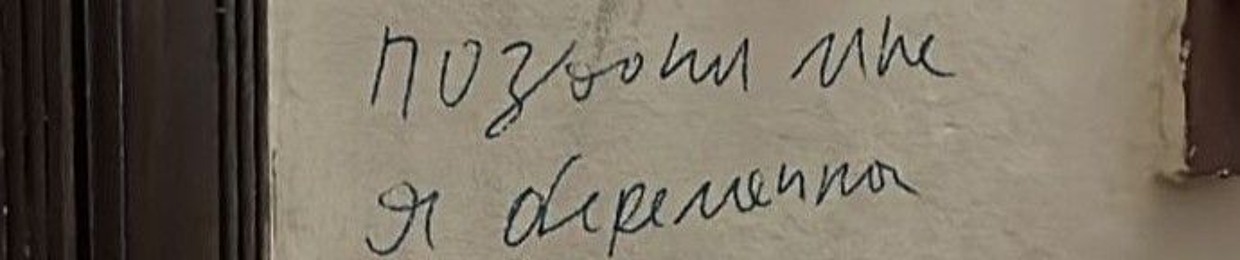 позвони мне
я беременна